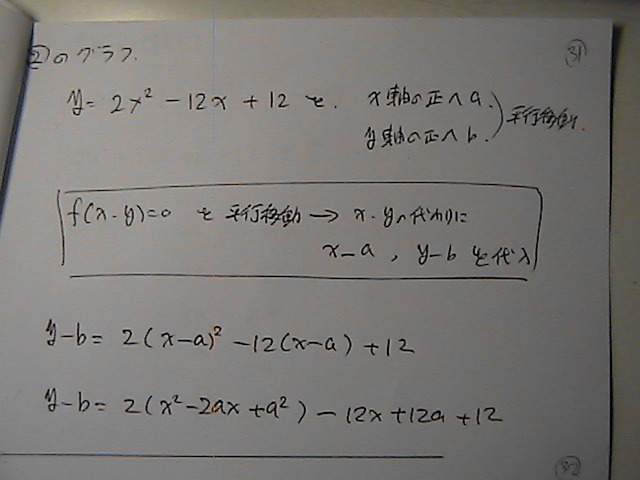 ②のグラフ. ㉛
y = 2x² - 12x + 12 を. x軸の正へa.
y軸の正へb. ) 平行移動.
f(x・y)=0 を平行移動 → x・yの代わりに
x-a , y-b を代入
y-b = 2(x-a)² - 12(x-a) + 12
y-b = 2(x²-2ax+a²) - 12x + 12a + 12
㉜